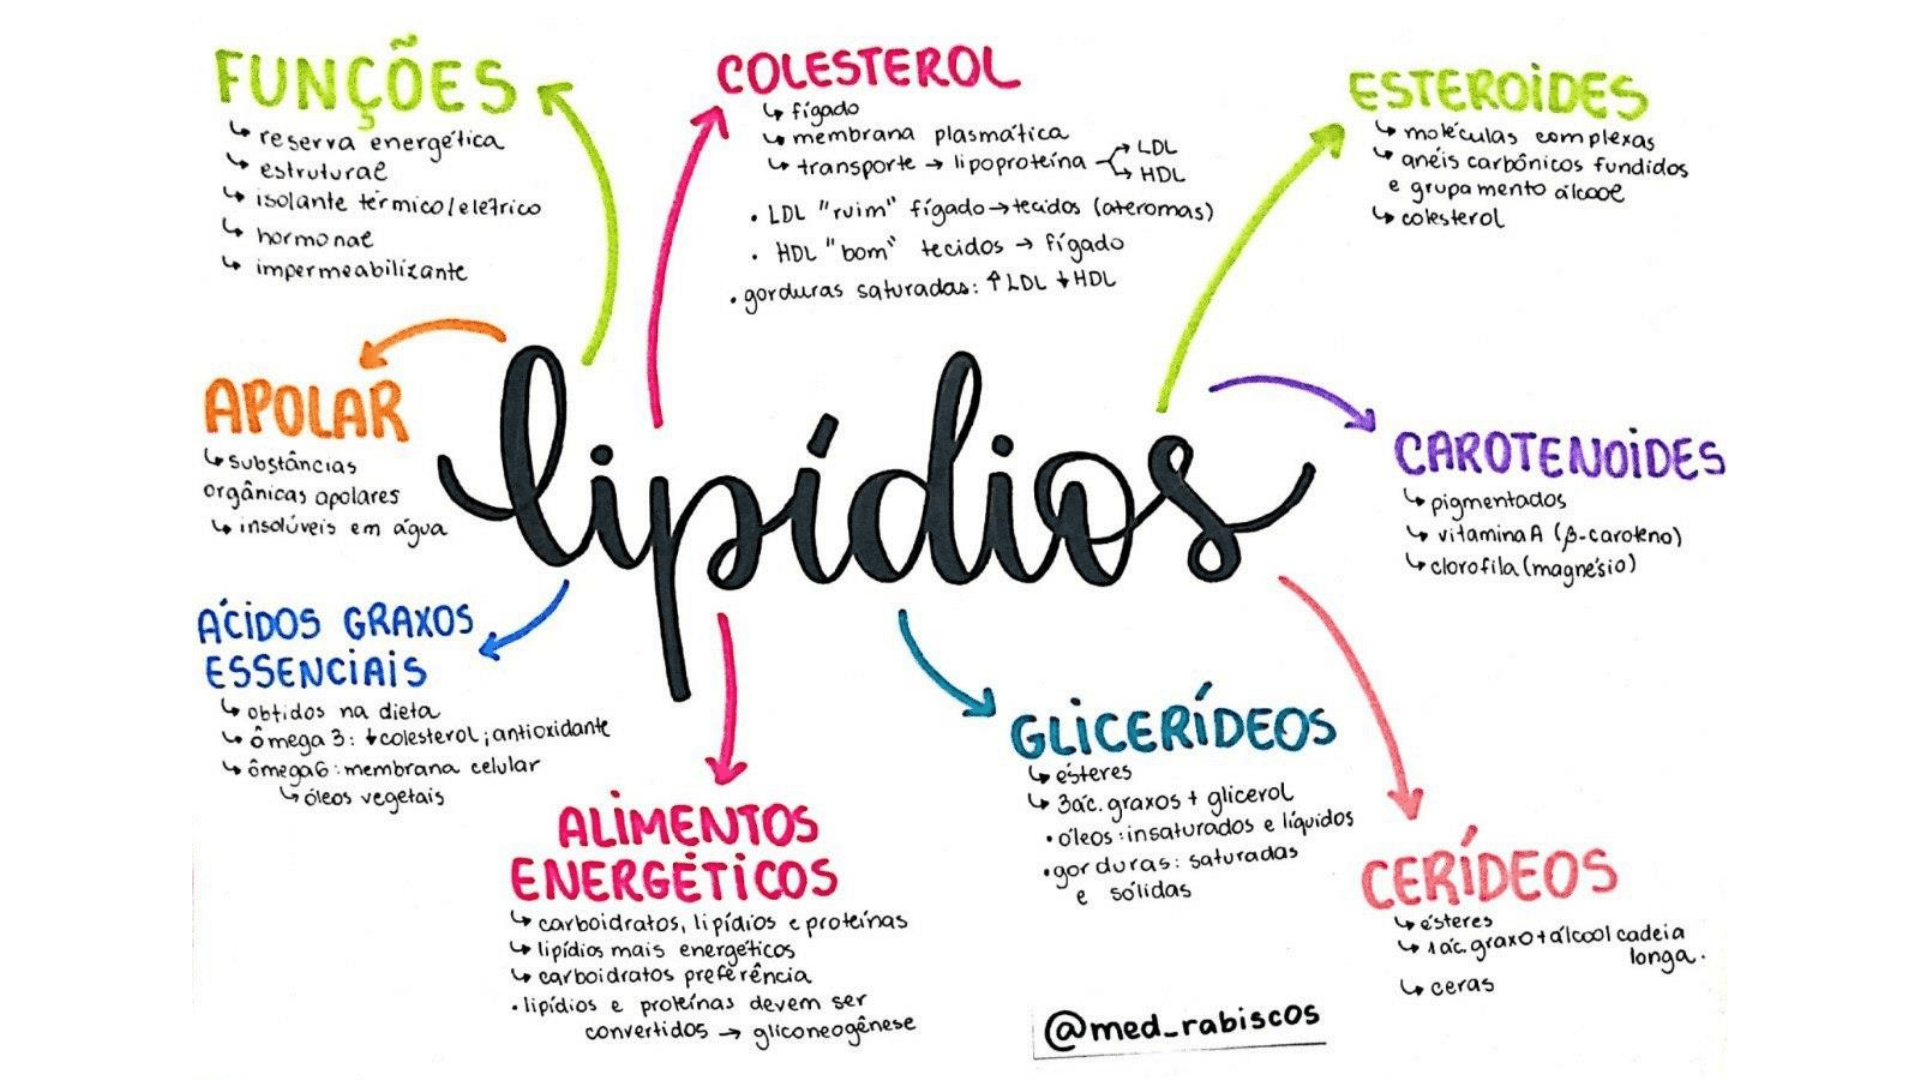 FUNÇÕES
↳ reserva energética
↳ estrutural
↳ isolante térmico/elétrico
↳ hormonal
↳ impermeabilizante
COLESTEROL
↳ fígado
↳ membrana plasmática
↳ transporte → lipoproteína → LDL
→ HDL
• LDL "ruim" fígado → tecidos (ateromas)
• HDL "bom" tecidos → fígado
• gorduras saturadas: ↑LDL ↓HDL
ESTEROIDES
↳ moléculas complexas
↳ anéis carbônicos fundidos
e grupamento álcool
↳ colesterol
APOLAR
↳ substâncias
orgânicas apolares
↳ insolúveis em água
lipídios
CAROTENOIDES
↳ pigmentados
↳ vitamina A (β-caroteno)
↳ clorofila (magnésio)
ÁCIDOS GRAXOS
ESSENCIAIS
↳ obtidos na dieta
↳ ômega 3: ↓colesterol; antioxidante
↳ ômega 6: membrana celular
↳ óleos vegetais
ALIMENTOS
ENERGÉTICOS
↳ carboidratos, lipídios e proteínas
↳ lipídios mais energéticos
↳ carboidratos preferência
• lipídios e proteínas devem ser
convertidos → gliconeogênese
GLICERÍDEOS
↳ ésteres
↳ 3 ác. graxos + glicerol
• óleos: insaturados e líquidos
• gorduras: saturadas
e sólidas
CERÍDEOS
↳ ésteres
↳ 1 ác. graxo + álcool cadeia
longa.
↳ ceras
@med_rabiscos